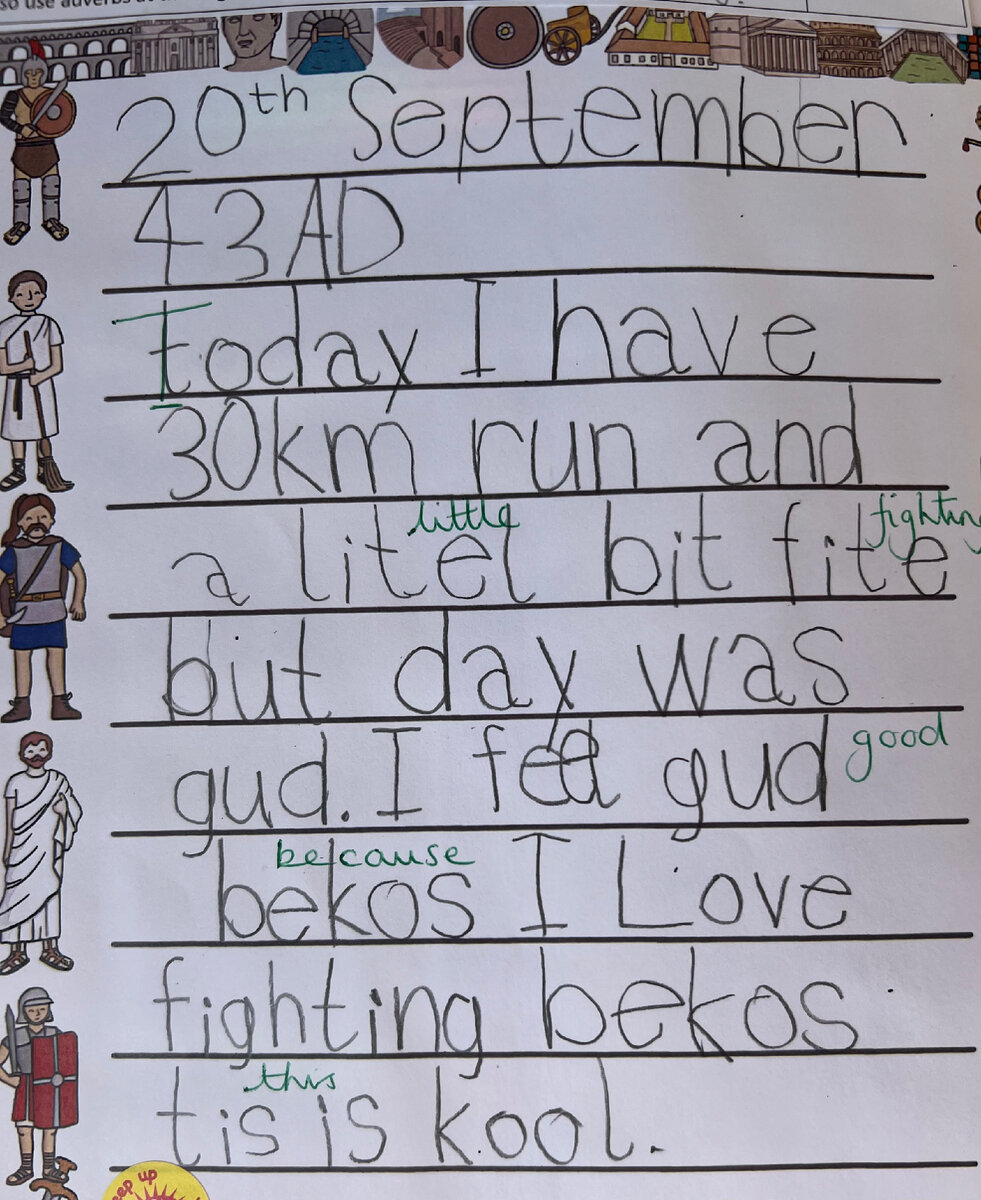 so use adverbs
20th September
43 AD
Today I have
30km run and
little fighting
a litel bit fite
but day was
gud. I feel gud good
because
bekos I Love
fighting bekos
this
tis is kool.
keep up